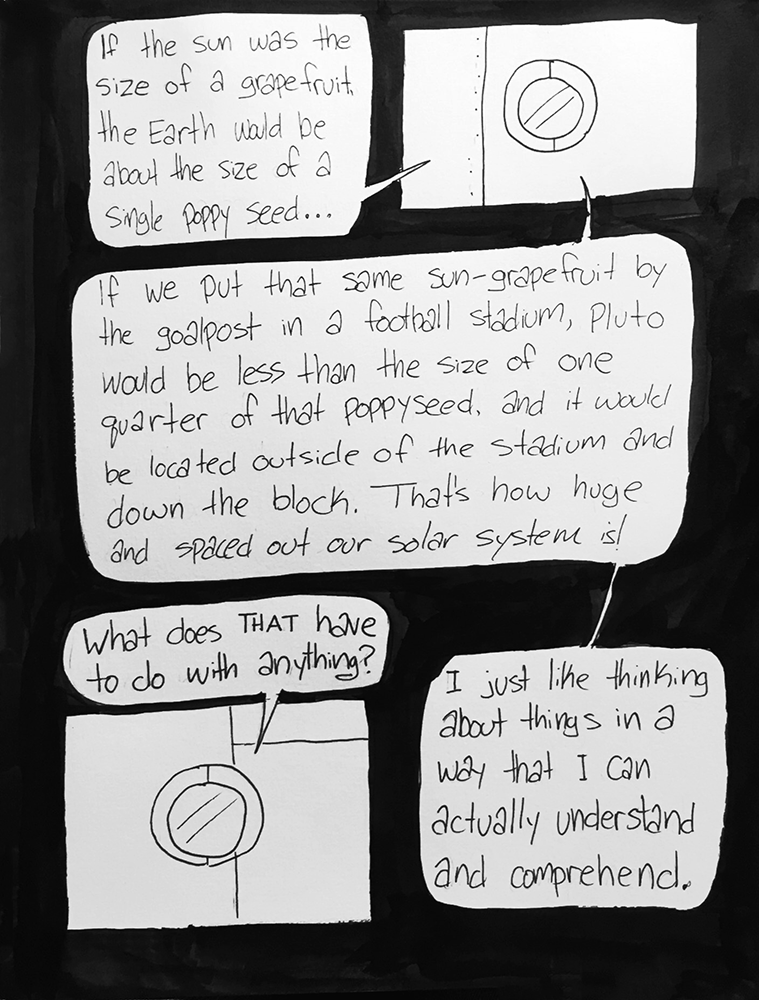 If the sun was the
size of a grapefruit,
the Earth would be
about the size of a
single poppy seed...
If we put that same sun-grapefruit by
the goalpost in a football stadium, Pluto
would be less than the size of one
quarter of that poppyseed, and it would
be located outside of the stadium and
down the block. That's how huge
and spaced out our solar system is!
What does THAT have
to do with anything?
I just like thinking
about things in a
way that I can
actually understand
and comprehend.